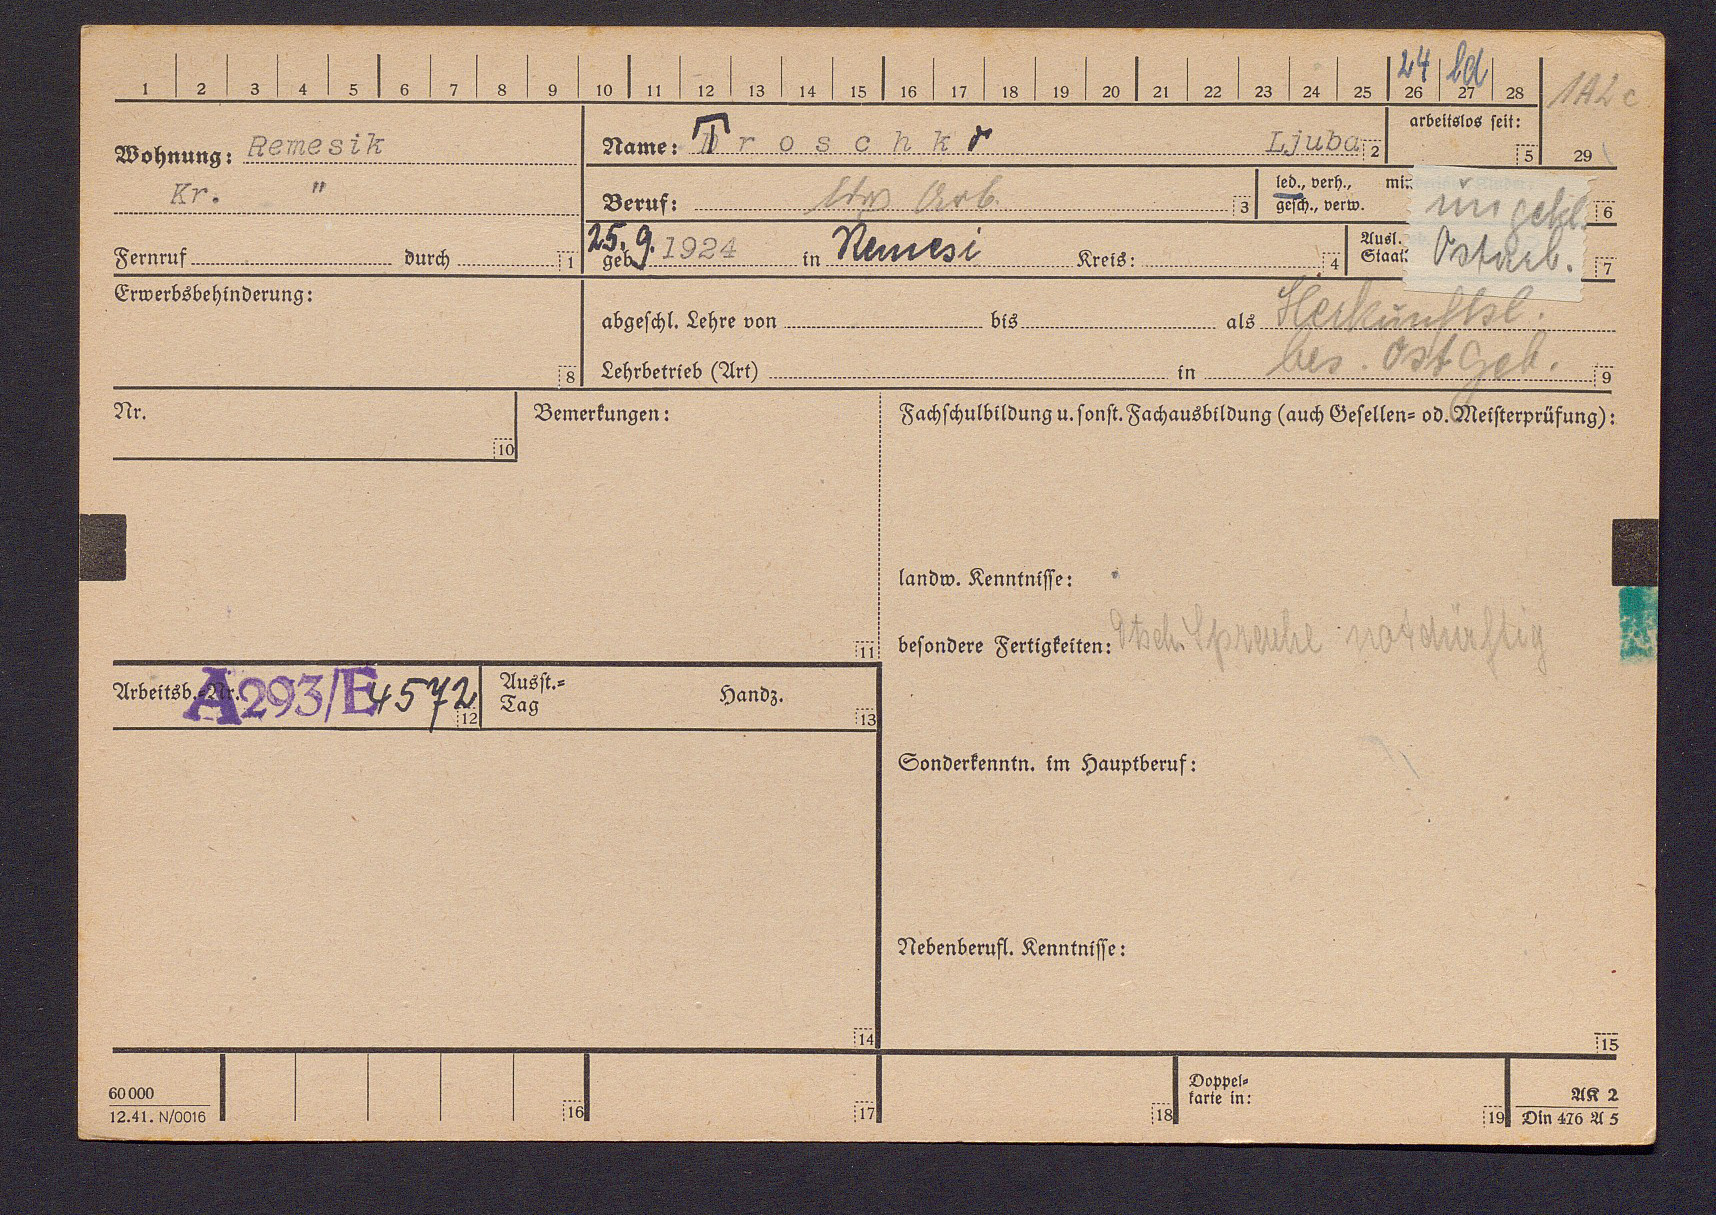 1 2 3 4 5 6 7 8 9 10 11 12 13 14 15 16 17 18 19 20 21 22 23 24 25 26 27 28
24 ld
1A2 c
29
arbeitslos seit:
5
Wohnung: Remesik
Kr. "
Name: Troschkr Ljuba 2
Beruf: ldw Arb. 3
led., verh.,
gesch., verw.
ungekl. 6
Fernruf durch 1
25.9.
geb. 1924 in Remesi Kreis: 4
Ausl.
Staat
Ostgeb. 7
Erwerbsbehinderung:
8
abgeschl. Lehre von bis als Herkunftsl.
bes. Ostgeb.
Lehrbetrieb (Art) in 9
Nr.
10
Bemerkungen:
11
Fachschulbildung u. sonst. Fachausbildung (auch Gesellen= od. Meisterprüfung):
landw. Kenntnisse:
besondere Fertigkeiten: Dtsch. Sprache notdürftig
Arbeitsb.=Nr. A293/E4572 12
Ausst.=
Tag
Handz.
13
Sonderkenntn. im Hauptberuf:
Nebenberufl. Kenntnisse:
14
15
60 000
12.41. N/0016
16
17
18
Doppel=
karte in:
19
AK 2
Din 476 A 5